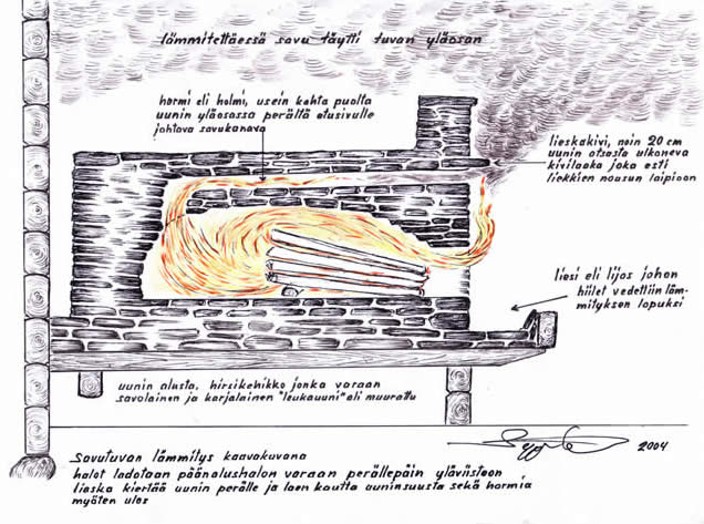 lämmitettäessä savu täytti tuvan yläosan
hormi eli holmi, usein kahta puolta
uunin yläosassa perältä etusivulle
johtava savukanava
lieskakivi, noin 20 cm
uunin otsasta ulkoneva
kivilaaka joka esti
liekkien nousun laipioon
liesi eli lijos johon
hiilet vedettiin läm-
mityksen lopuksi
uunin alusta, hirsikehikko jonka varaan
savolainen ja karjalainen "leukauuni" eli muurattu
2004
Savutuvan lämmitys kaavakuvana
halot ladotaan päänalushalon varaan perällepäin yläviistoon
lieska kiertää uunin perälle ja laen kautta uuninsuusta sekä hormia
myöten ulos